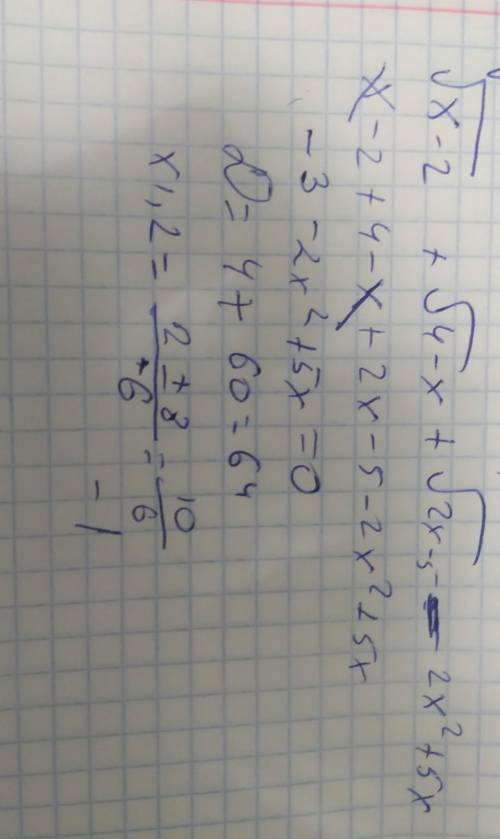 √x-2 + √4-x + √2x-5 - 2x²+5x
x-2+4-x+2x-5-2x²+5x
-3-2x²+5x=0
D=4+60=64
x1,2= 2±8/6 = 10/6
-1